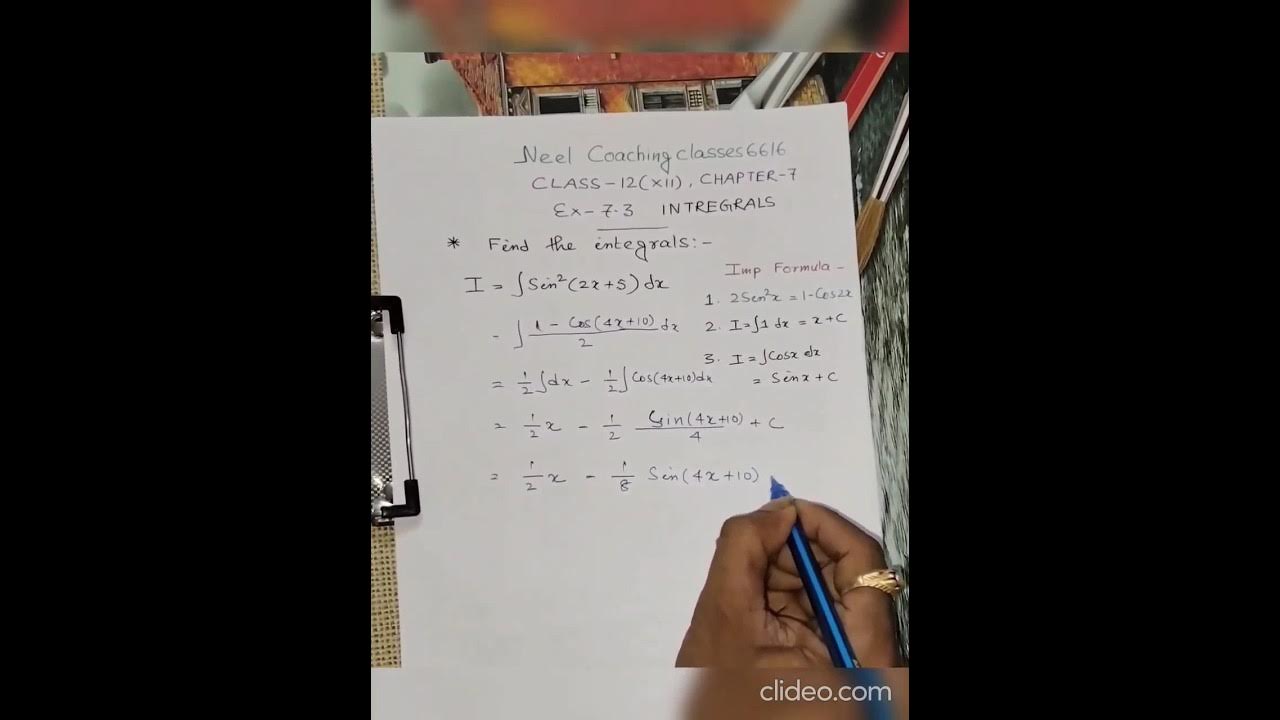 Neel Coaching classes6616
CLASS-12(XII), CHAPTER-7
Ex-7.3 INTREGRALS
* Find the integrals:-
I = ∫Sin²(2x+5)dx
- ∫ (1 - Cos(4x+10))/2 dx
= 1/2 ∫dx - 1/2 ∫Cos(4x+10)dx
= 1/2 x - 1/2 Sin(4x+10)/4 + C
= 1/2 x - 1/8 Sin(4x+10)
Imp Formula -
1. 2Sin²x = 1-Cos2x
2. I=∫1 dx = x+C
3. I=∫Cosx dx
= Sinx+C
clideo.com